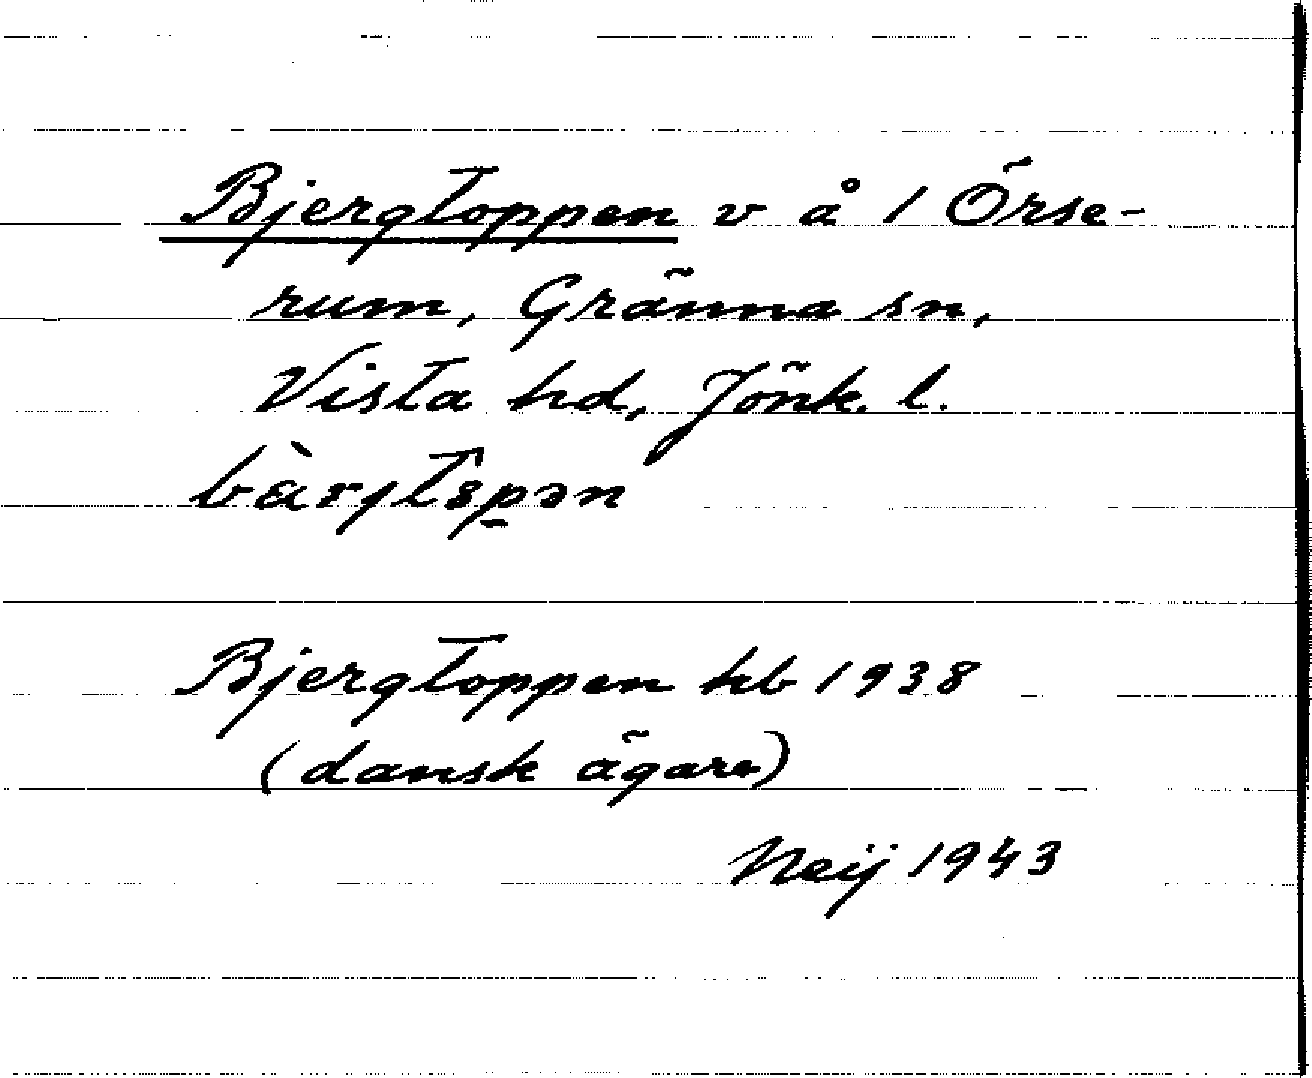 Bjergtoppen v å 1 Örse-
rum, Gränna sn,
Vista hd, Jönk. l.
Bjergtoppen hb 1938
(dansk ägare)
Neij 1943